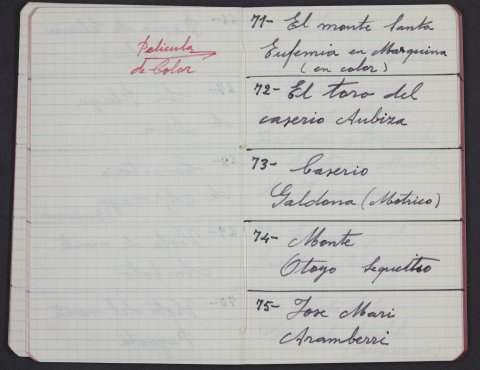 Pelicula
de Color
71- El monte Santa
Eufemia en Marquina
(en color)
72- El toro del
caserio Aubiza
73- Caserio
Galdona (Motrico)
74- Monte
Otoyo Lequeitio
75- Jose Mari
Aramberri